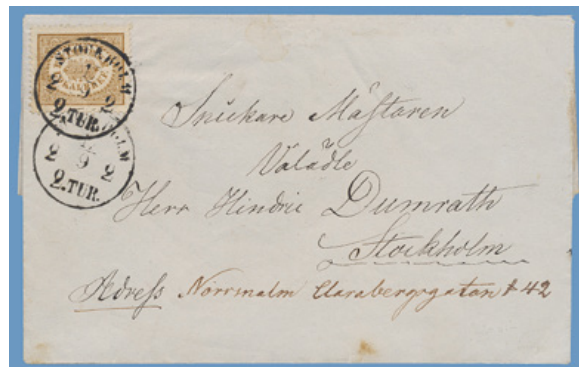 STOCKHOLM
2 9 2
2.TUR.
2 9 2
2.TUR.
Snickare Mästaren
Valädle
Herr Hindric Dumrath
Stockholm
Adress Norrmalm Clarabergsgatan № 42